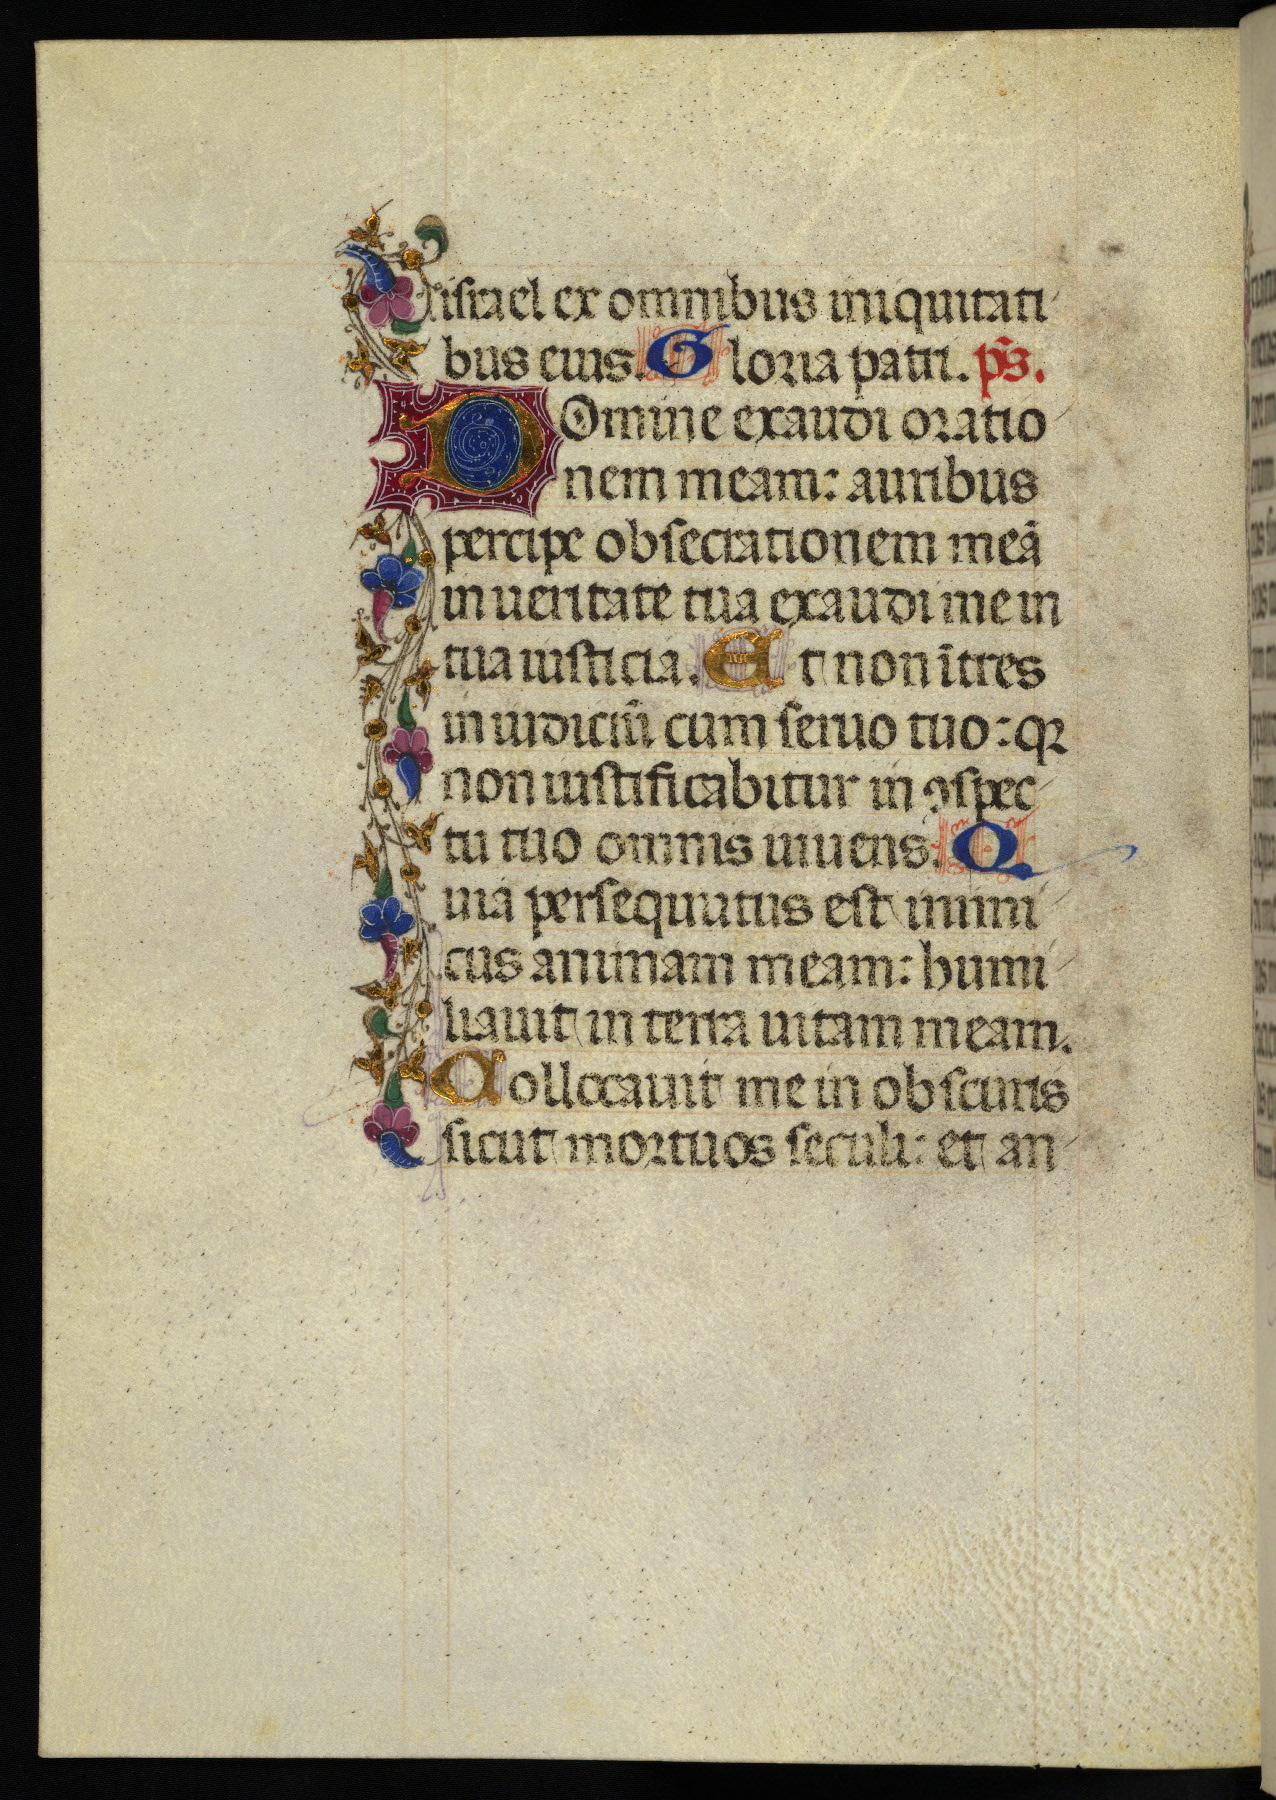 israel ex omnibus iniquitati
bus eius. Gloria patri. p̄s.
DOmine exaudi oratio
nem meam: auribus
percipe obsecrationem meā
in ueritate tua exaudi me in
tua iusticia. Et non ītres
in iudiciū cum seruo tuo: qꝛ
non iustificabitur in ꝯspec
tu tuo omnis uiuens. Q
uia persequutus est inimi
cus animam meam: humi
liauit in terra uitam meam.
Collocauit me in obscuris
sicut mortuos seculi: et an